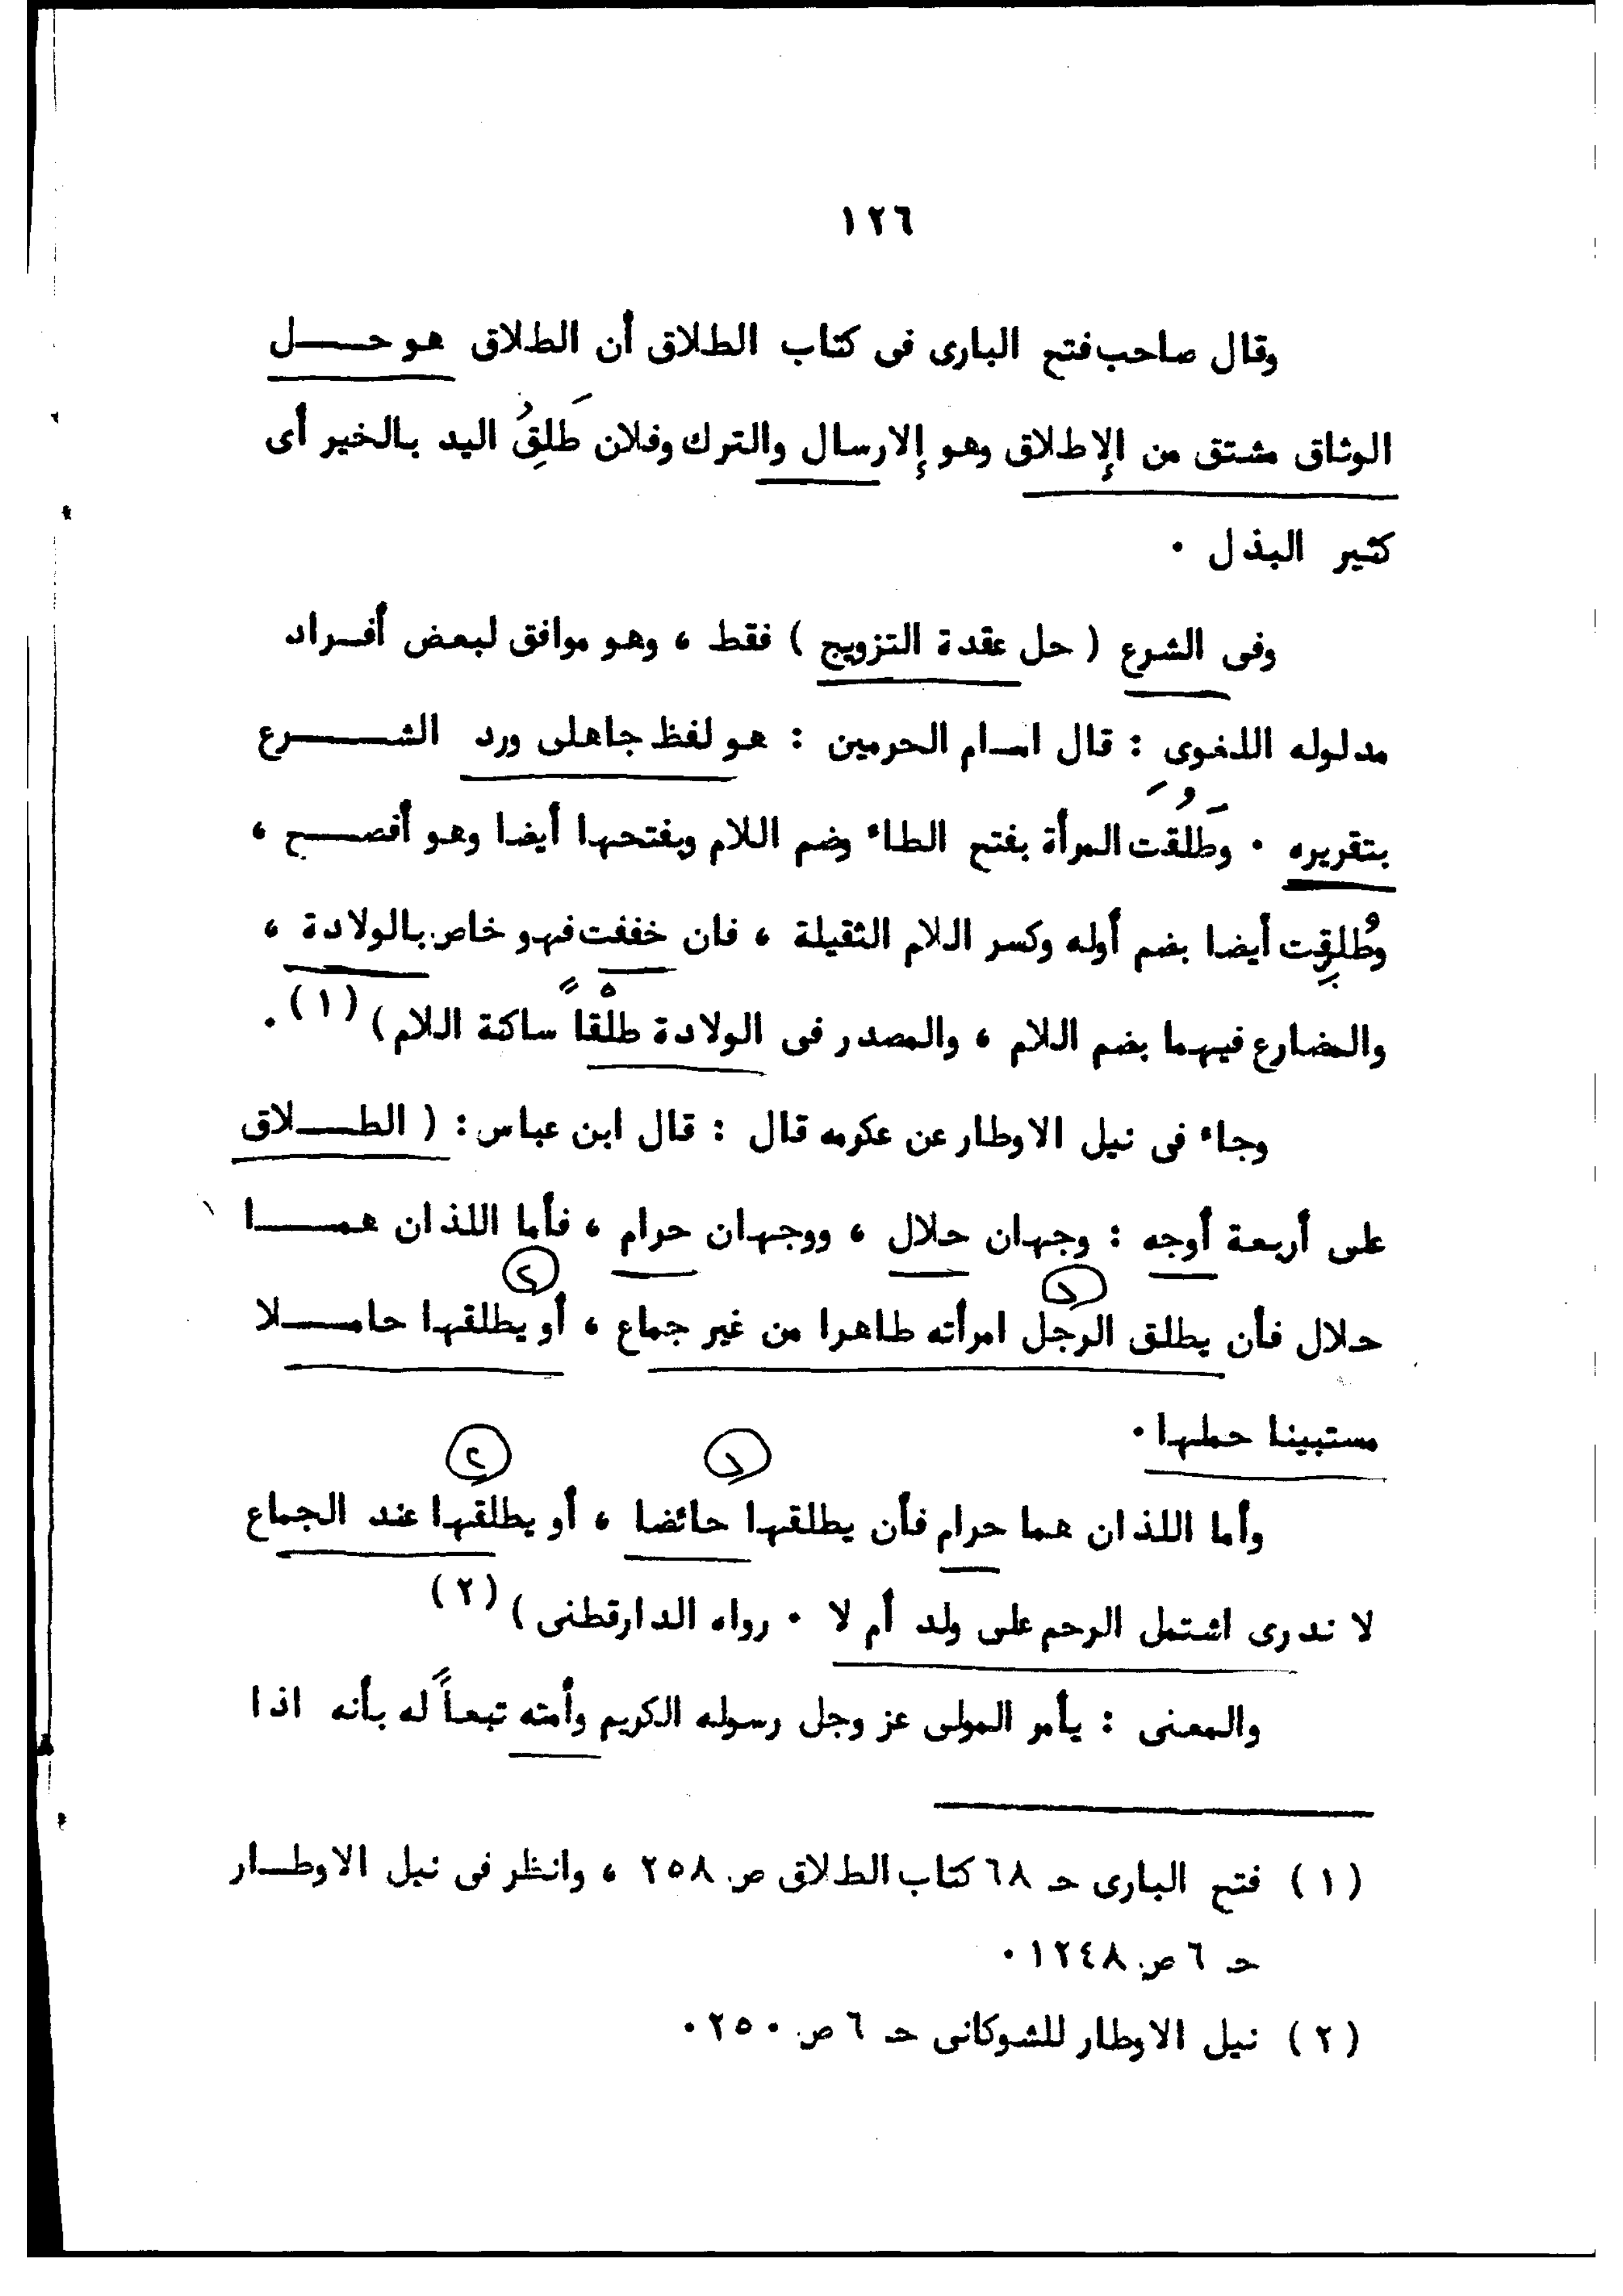 ١٢٦
وقال صاحب فتح البارى فى كتاب الطلاق أن الطلاق هو حـــل
الوثاق مشتق من الإطلاق وهو الإرسال والترك وفلان طَلِقُ اليد بالخير أى
كثير البذل ٠
وفى الشرع ( حل عقدة التزويج ) فقط ، وهو موافق لبعض أفــراد
مدلوله اللغوى : قال امام الحرمين : هو لفظ جاهلى ورد الشـــرع
بتقريره ٠ وَطَلُقَت المرأة بفتح الطاء وضم اللام وبفتحها أيضا وهو أفصـــح ،
وطُلِّقت أيضا بضم أوله وكسر اللام الثقيلة ، فان خففت فهو خاص بالولادة ،
والمضارع فيهما بضم اللام ، والمصدر فى الولادة طلْقاً ساكنة اللام ) (١) ٠
وجاء فى نيل الاوطار عن عكرمه قال : قال ابن عباس : ( الطـــلاق
على أربعة أوجه : وجهان حلال ، ووجهان حرام ، فأما اللذان همـــا
١ ٢
حلال فأن يطلق الرجل امرأته طاهرا من غير جماع ، أو يطلقها حامـــلا
مستبينا حملها ٠
١ ٢
وأما اللذان هما حرام فأن يطلقها حائضا ، أو يطلقها عند الجماع
لا ندرى اشتمل الرحم على ولد أم لا ٠ رواه الدارقطنى ) (٢)
والمعنى : يأمر المولى عز وجل رسوله الكريم وأمته تبعاً له بأنه اذا
(١) فتح البارى حـ ٦٨ كتاب الطلاق ص ٢٥٨ ، وانظر فى نيل الاوطــار
حـ ٦ ص ١٢٤٨ ٠
(٢) نيل الاوطار للشوكانى حـ ٦ ص ٢٥٠ ٠